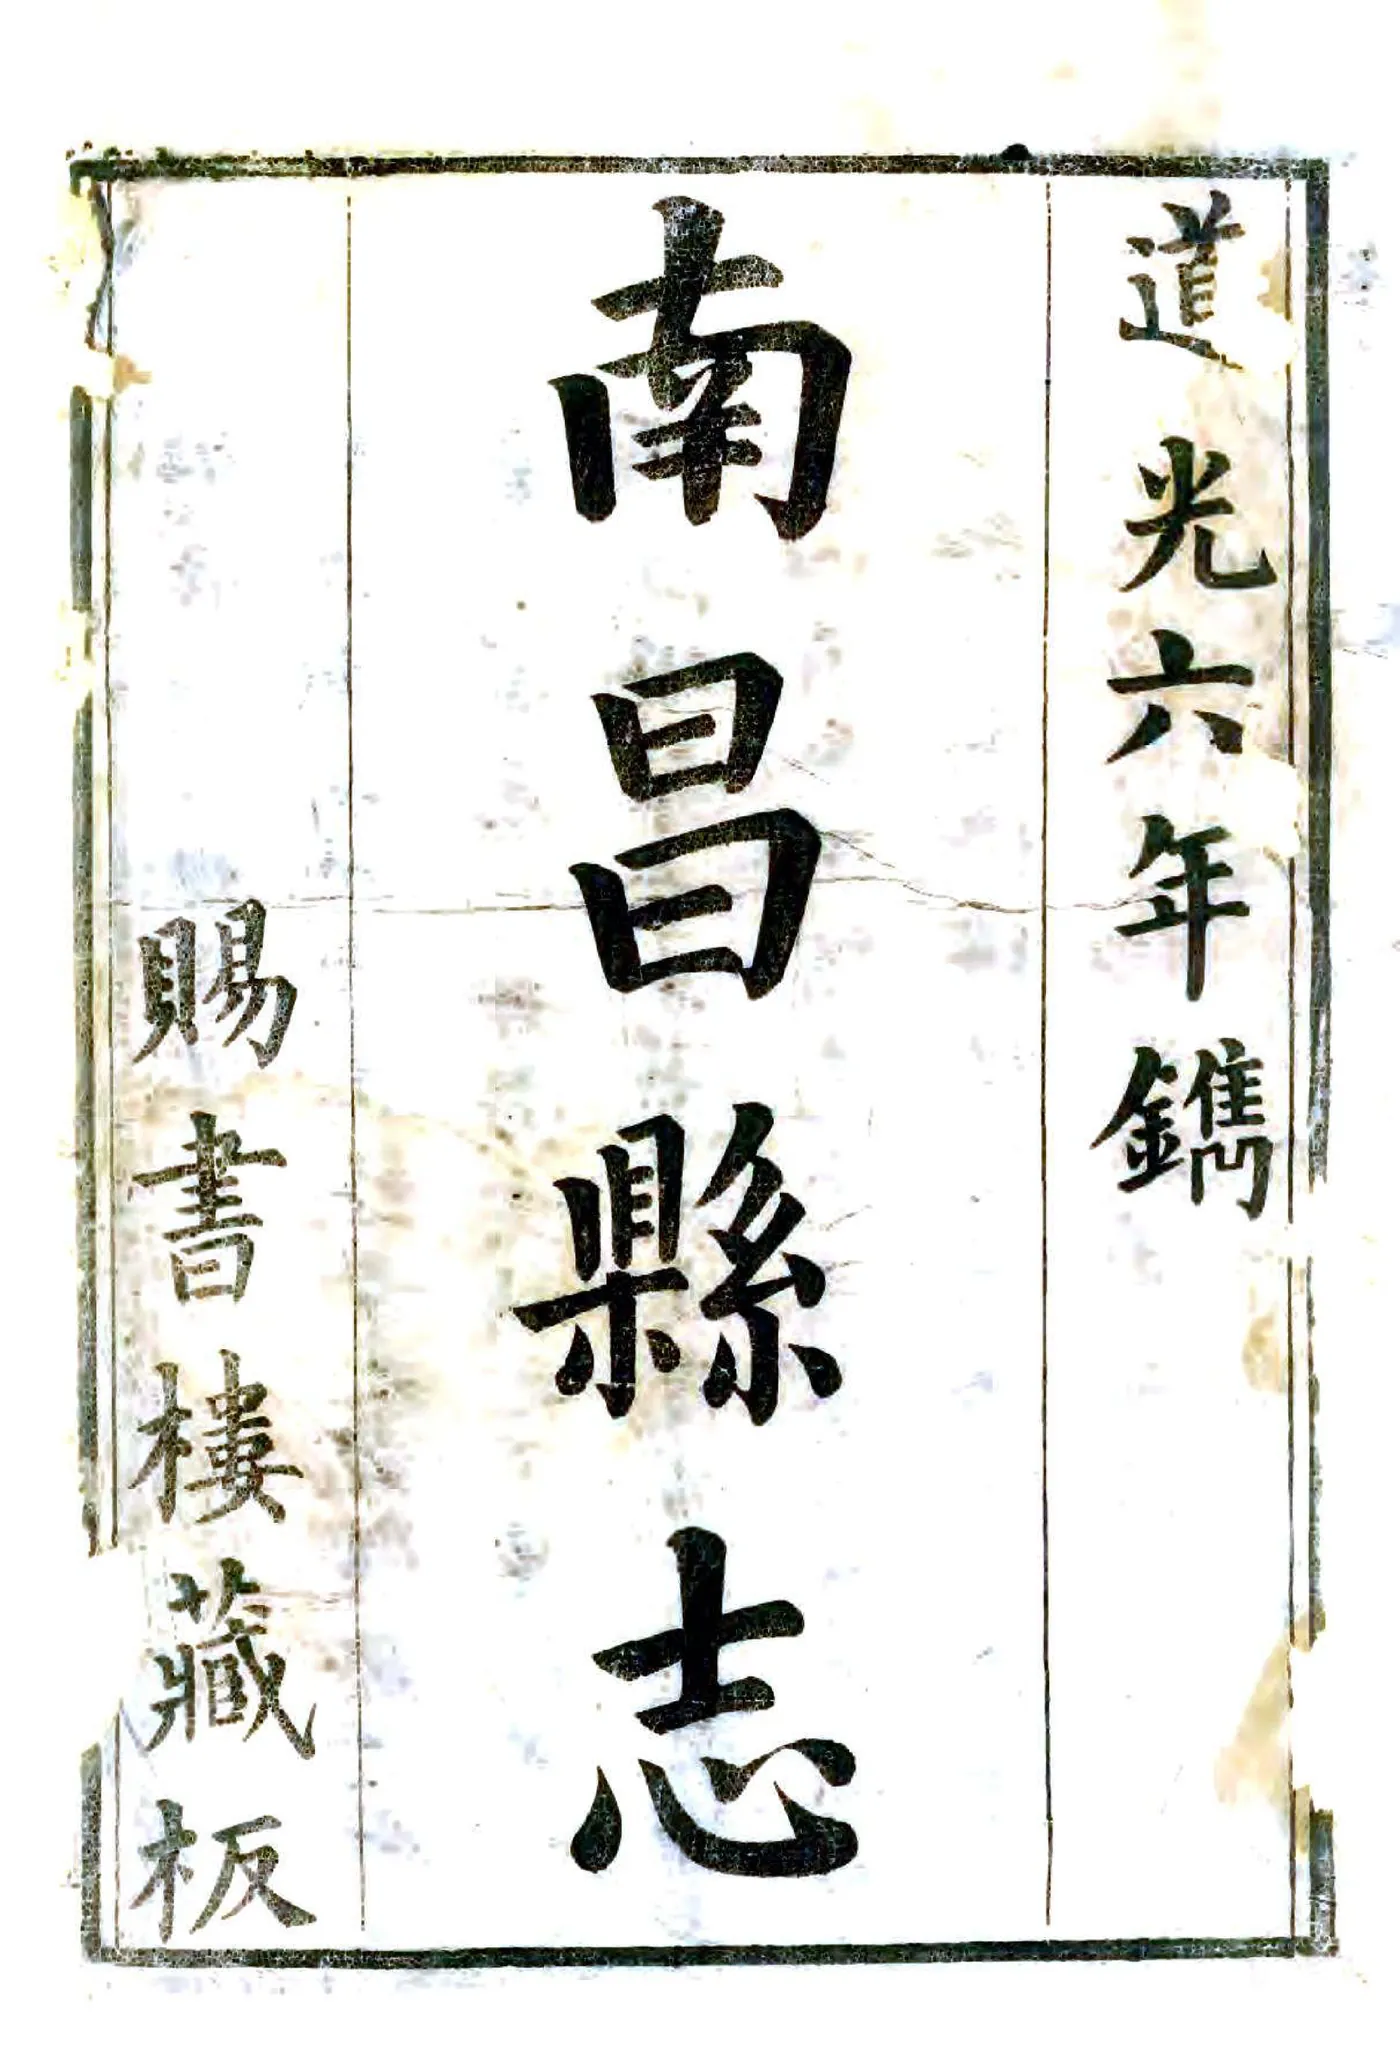 道光六年鐫
南昌縣志
賜書樓藏板